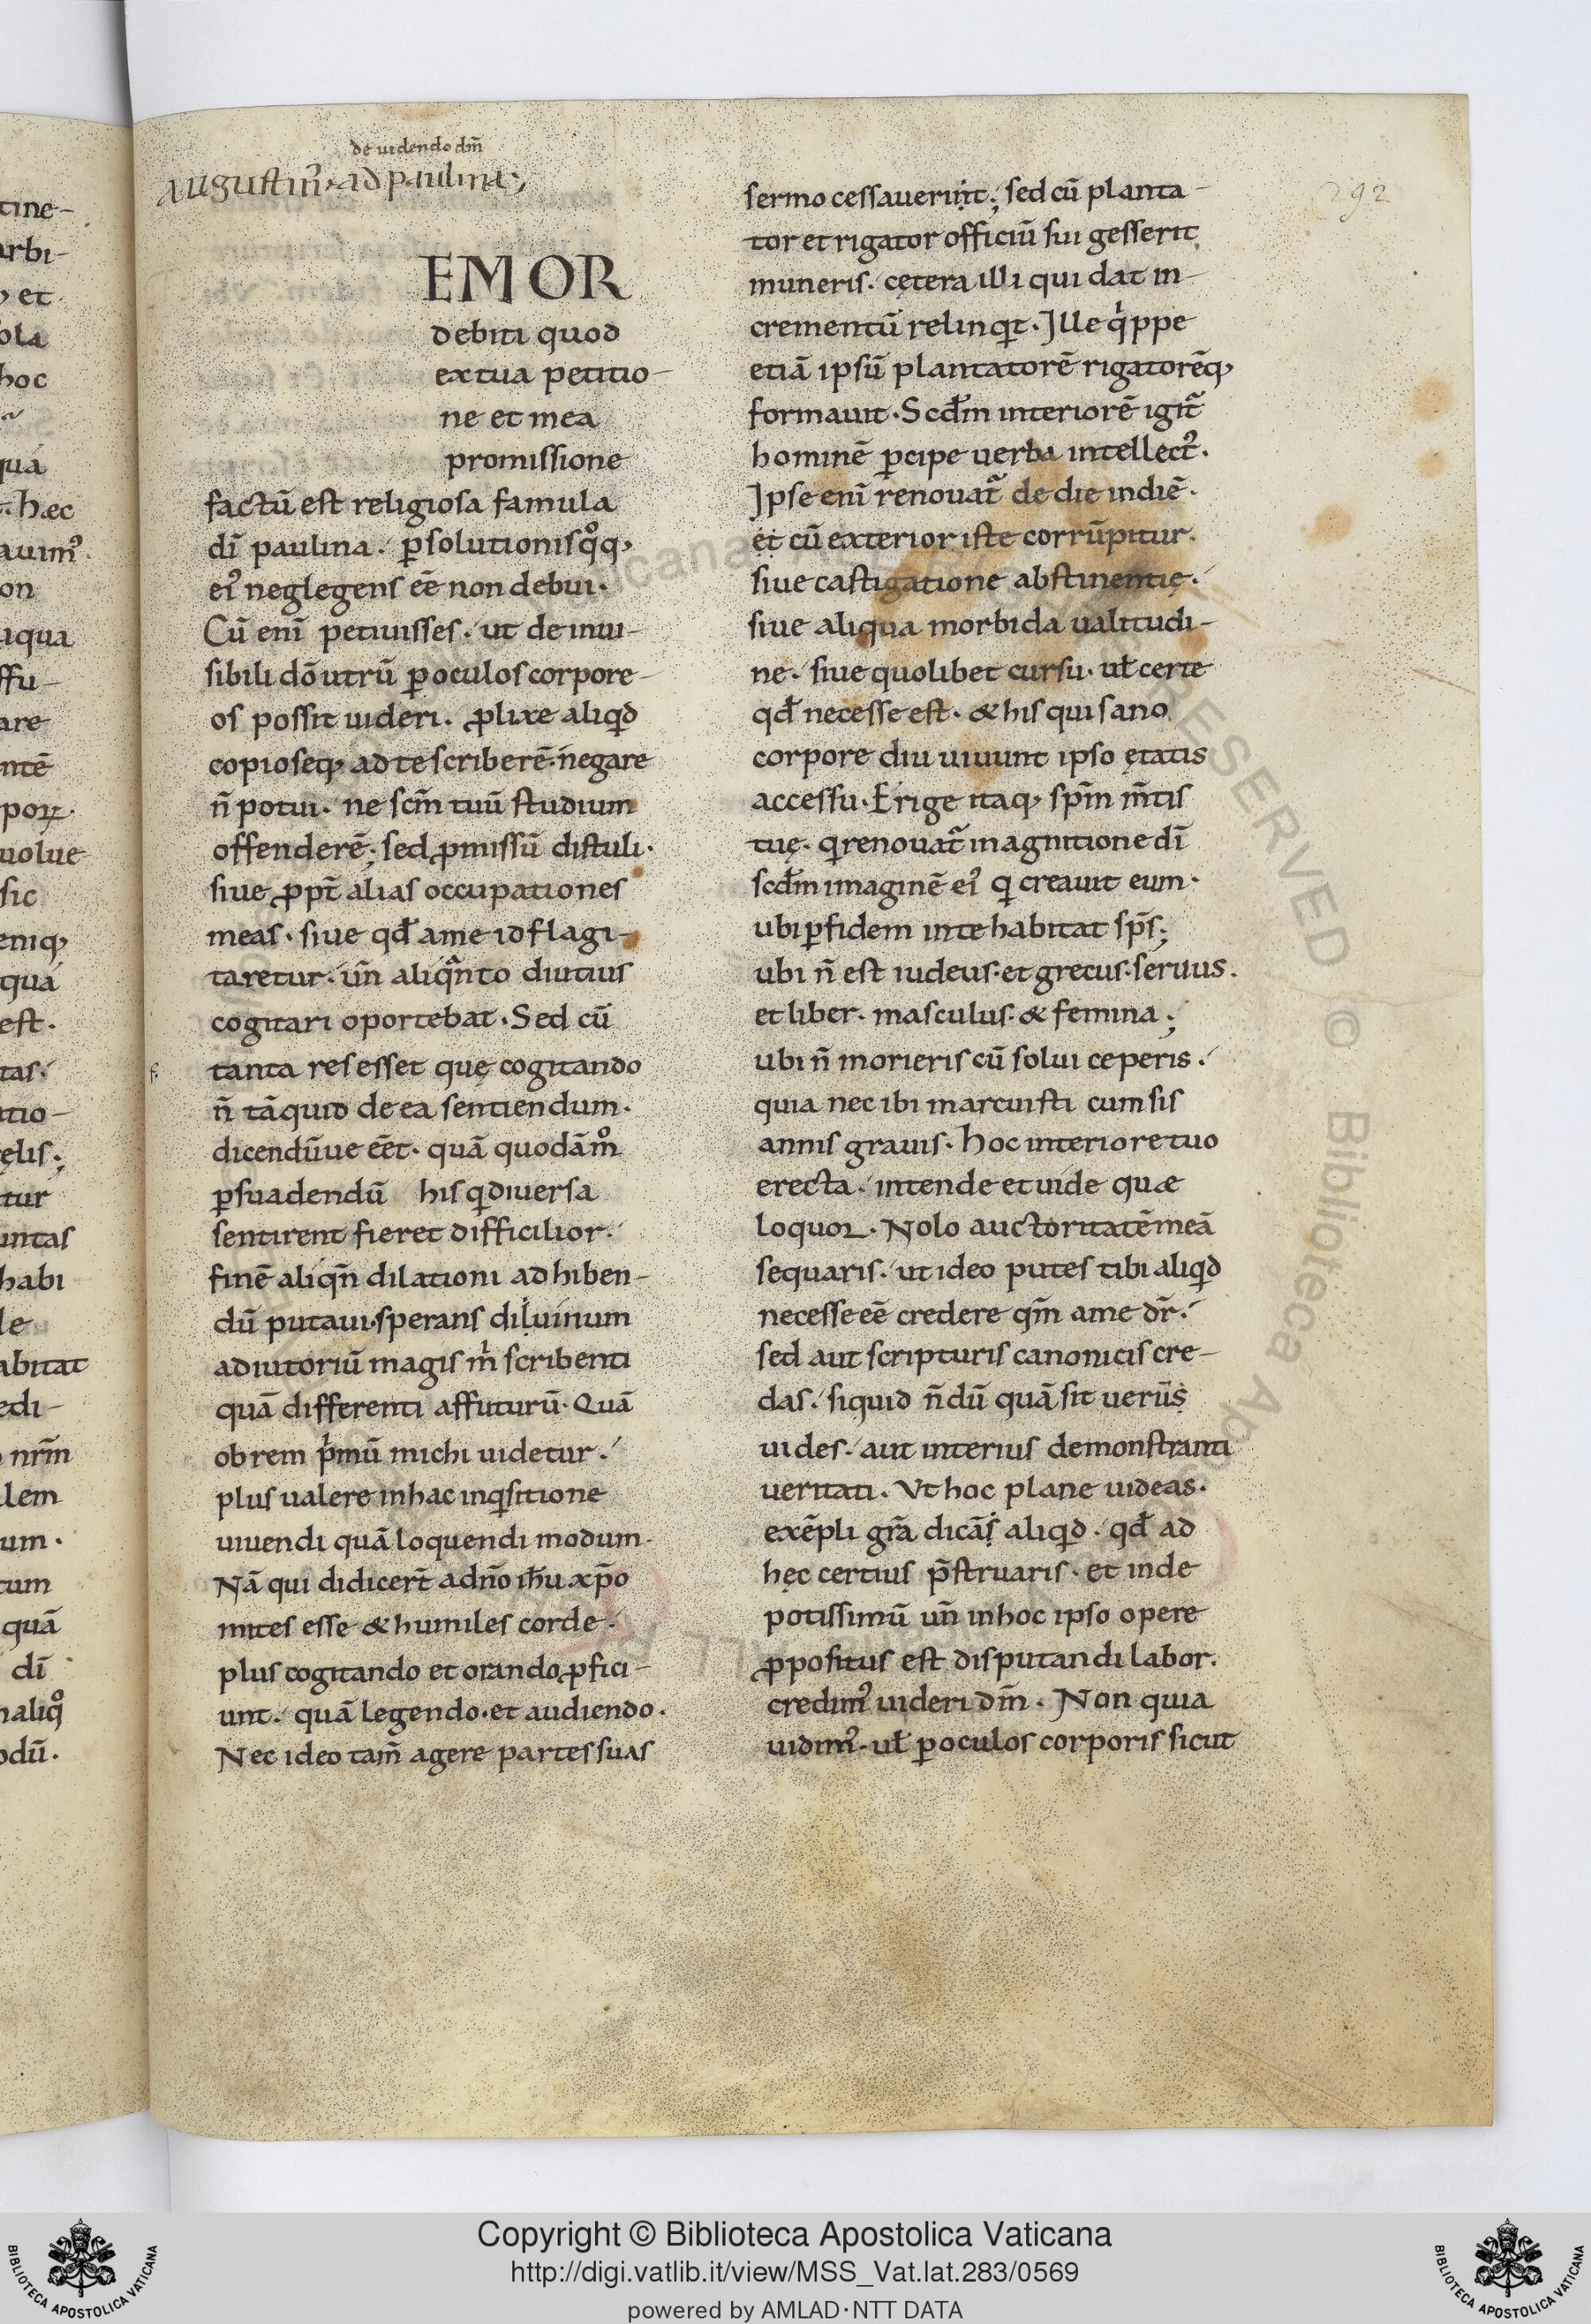 de uidendo dm̄
augustin᷒ · ad paulinā ;
EMOR
debiti quod
ex tua petitio-
ne et mea
promissione
factū est religiosa famula
dī paulina. ꝑsolutionis qͦq;
ei᷒ neglegens eē non debui.
Cū enī petiuisses. ut de inui-
sibili dō utrū ꝑ oculos corpore-
os possit uideri. ꝓlixe aliqd
copioseq; ad te scriberē. negare
n̄ potui. ne scm̄ tuū studium
offenderē; sed ꝓmissū distuli.
siue ꝓpt̄ alias occupationes
meas. siue qđ a me id flagi-
taretur. un̄ aliqͣnto diutius
cogitari oportebat. Sed cū
tanta res esset quę cogitando
n̄ tā quid de ea sentiendum.
dicendūue eēt. quā quodā mͦ
ꝑsuadendū his qͥ diuersa
sentirent fieret difficilior.
finē aliqn̄ dilationi adhiben-
dū putaui. sperans diluinum
adiutoriū magis mͥ scribenti
quā differenti affuturū. Quā
ob rem pͥmū michi uidetur.
plus ualere in hac inqͥsitione
uiuendi quā loquendi modum.
Nā qui didicer̄t a dn̄o ih̄u xp̄o
mites esse & humiles corde.
plus cogitando et orando ꝓfici-
unt. quā legendo. et audiendo.
Nec ideo tam̄ agere partes suas
292
sermo cessauerint; sed cū planta-
tor et rigator officiū sui gesserit
muneris. cętera illi qui dat in-
crementū relinqͥt. Ille qͥppe
etiā ipsū plantatorē rigatorēq;
formauit. Scđm interiorē igit᷑
hominē ꝑcipe uerba intellect᷒.
Ipse enī renouat᷑ de die in diē.
et cū exterior iste corrūpitur.
siue castigatione abstinentię.
siue aliqua morbida ualitudi-
ne. siue quolibet cursu. uł certe
qđ necesse est. & his qui sano
corpore diu uiuunt ipso ętatis
accessu. Erige itaq; spm̄ m̄tis
tuę. qͥ renouat᷑ in agnitione dī
scđm imaginē ei᷒ qͥ creauit eum.
ubi ꝑ fidem in te habitat sp̄s;
ubi n̄ est iudeus. et grecus. seruus.
et liber. masculus. & femina;
ubi n̄ morieris cū solui ceperis.
quia nec ibi marcuisti cum sis
annis grauis. Hoc interiore tuo
erecta. intende et uide quæ
loquor. Nolo auctoritatē meā
sequaris. ut ideo putes tibi aliqd
necesse eē credere qm̄ a me dr̄.
sed aut scripturis canonicis cre-
das. siquid n̄dū quā sit uerūs
uides. aut interius demonstranti
ueritati. Vt hoc plane uideas.
exēpli gr̄a dicā aliqd. qđ ad
hęc certius p̄struaris. et inde
potissimū un̄ in hoc ipso opere
ꝓpositus est disputandi labor.
credim᷒ uideri dm̄. Non quia
uidim᷒. uł ꝑ oculos corporis sicut
Copyright © Biblioteca Apostolica Vaticana
http://digi.vatlib.it/view/MSS_Vat.lat.283/0569
powered by AMLAD·NTT DATA